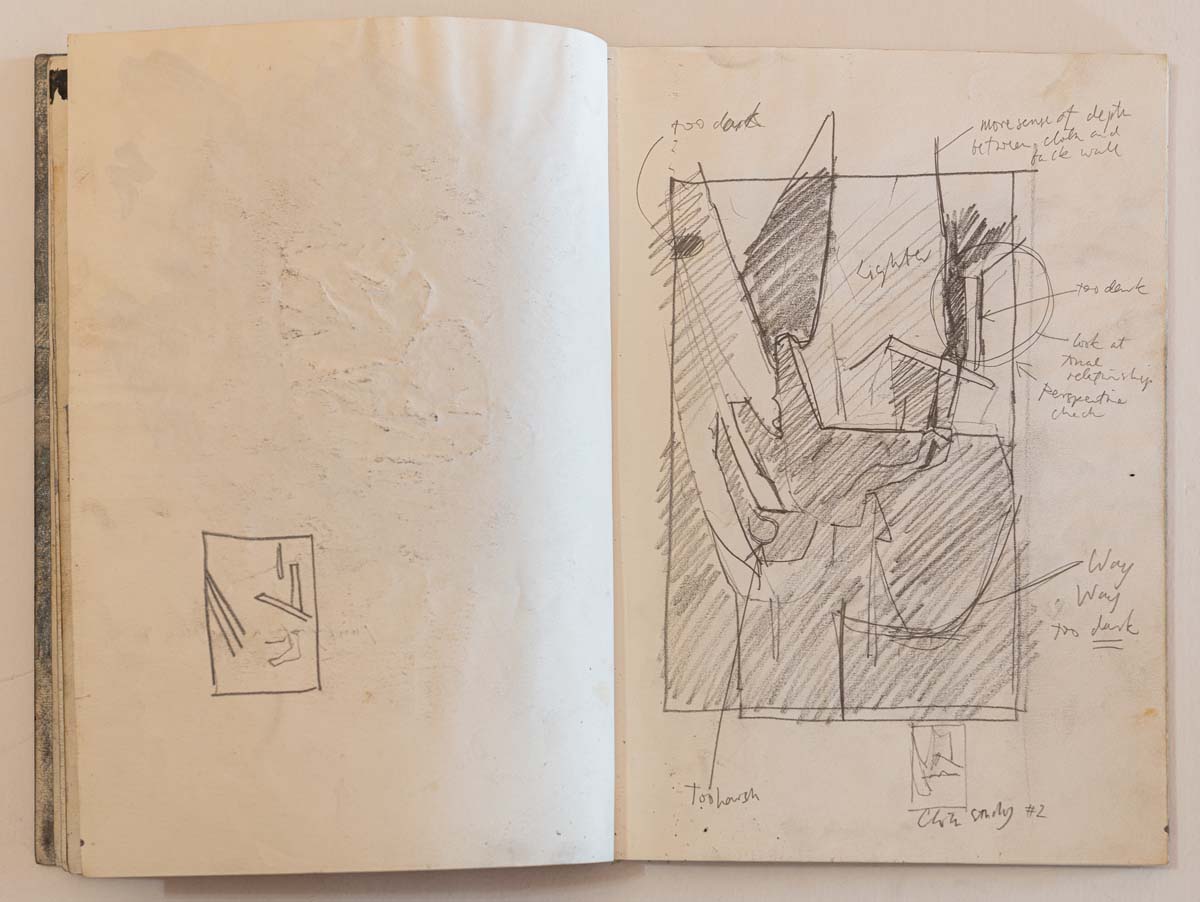 too dark
more sense of depth
between cloth and
back wall
Lighter
too dark
look at
tonal
relationship
Perspective
check
Way
Way
too dark
Too harsh
Cloth study #2